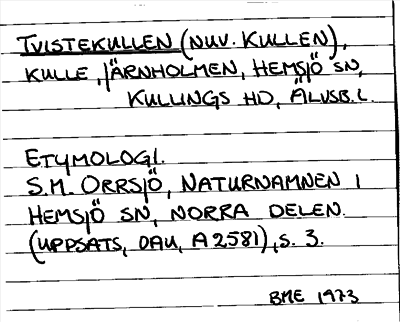 TVISTEKULLEN (NUV. KULLEN),
KULLE, JÄRNHOLMEN, HEMSJÖ SN,
KULLINGS HD, ÄLVSB. L.
ETYMOLOGI.
S.M. ORRSJÖ, NATURNAMNEN I
HEMSJÖ SN, NORRA DELEN.
(UPPSATS, OAU, A 2581), S. 3.
BME 1973